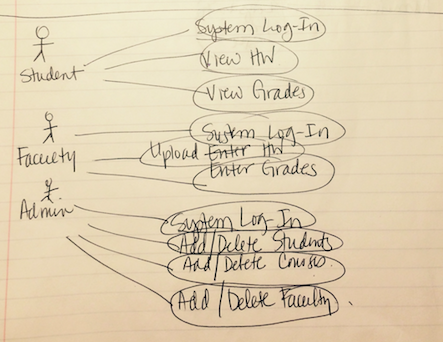 System Log-In
View HW
Student
View Grades
System Log-In
Faculty
Upload Enter HW
Enter Grades
Admin
System Log-In
Add/Delete Students
Add/Delete Courses.
Add/Delete Faculty.